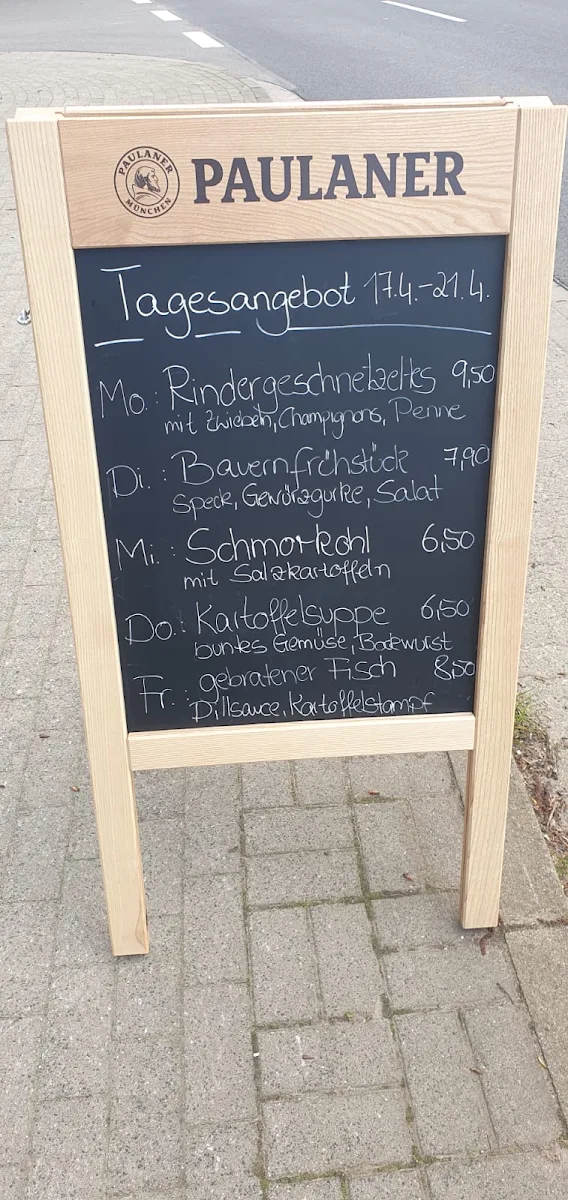 PAULANER
MÜNCHEN
PAULANER
Tagesangebot 17.4.-21.4.
Mo.: Rindergeschnetzeltes 9,50
mit Zwiebeln, Champignons, Penne
Di.: Bauernfrühstück 7,90
Speck, Gewürzgurke, Salat
Mi.: Schmorkohl 6,50
mit Salzkartoffeln
Do.: Kartoffelsuppe 6,50
buntes Gemüse, Bockwurst
Fr.: gebratener Fisch 8,50
Dillsauce, Kartoffelstampf